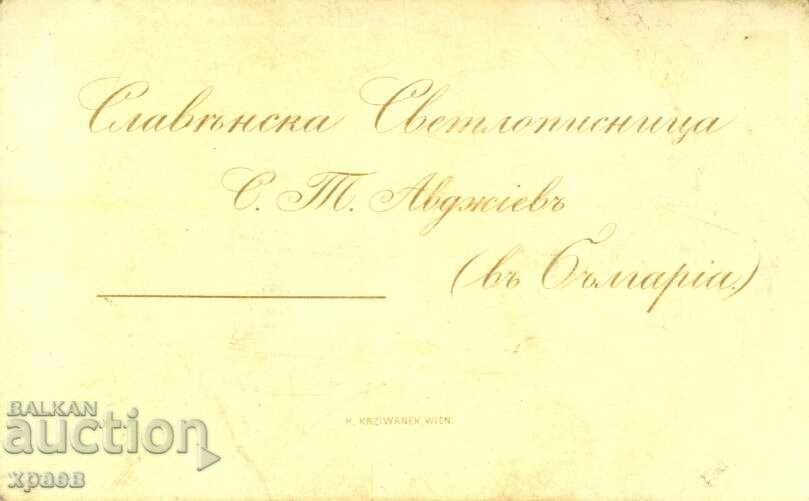 Славѣнска Светлописница
С. Т. Авджіевъ
(въ Бъlгаріа.)
K. KRZIWANEK, WIEN.
BALKAN
auction
храев